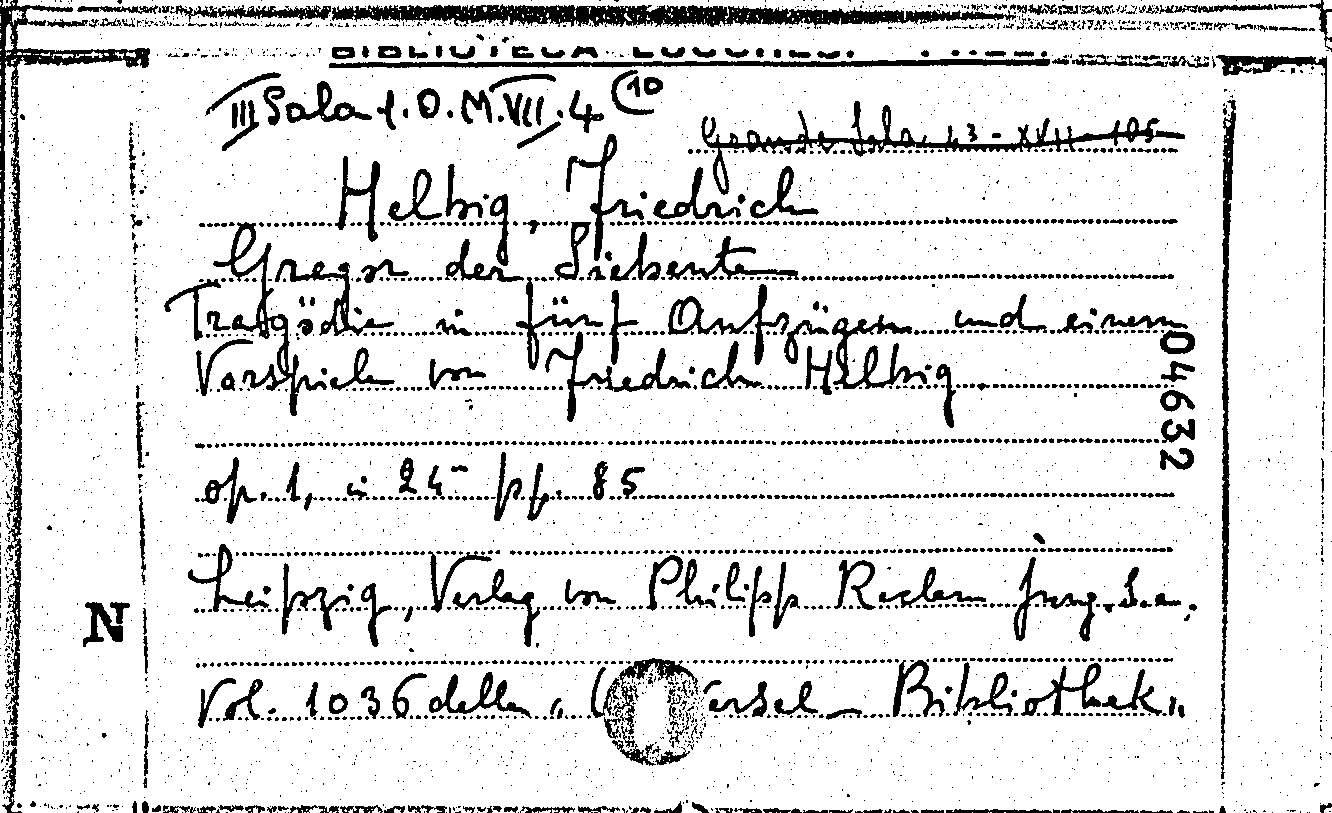 BIBLIOTECA LUCCHESI
III Sala 1.O.M.VII.4 (10
Grande Sala 43-XVII-105
Helbig, Friedrich
Gregor der Siebente
Tragödie in fünf Aufzügen und einem
Vorspiele von Friedrich Helbig.
04632
op. 1, in 24- pp. 85
Leipzig, Verlag von Philipp Reclam jung. S.a.
N
Vol. 1036 della "( ersel – Bibliothek"